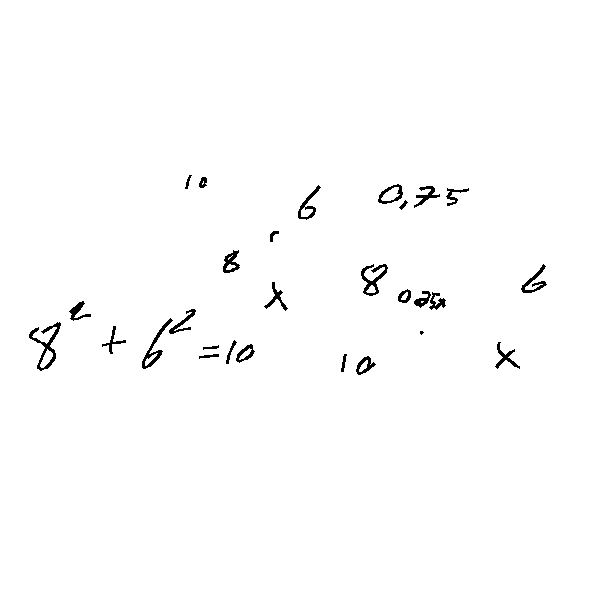 10
6 0,75
r
8
8 0.75x 6
x
8² + 6² = 10
10 x